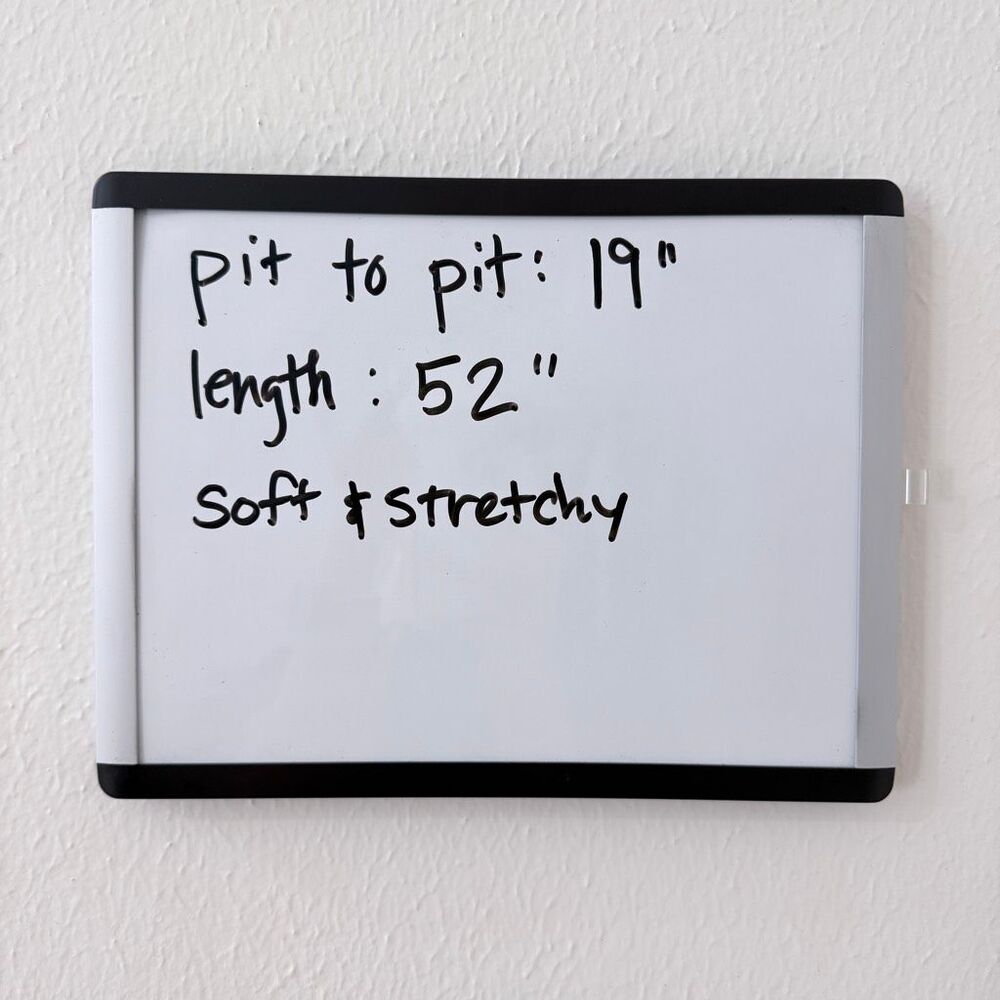 pit to pit: 19"
length: 52"
soft & stretchy